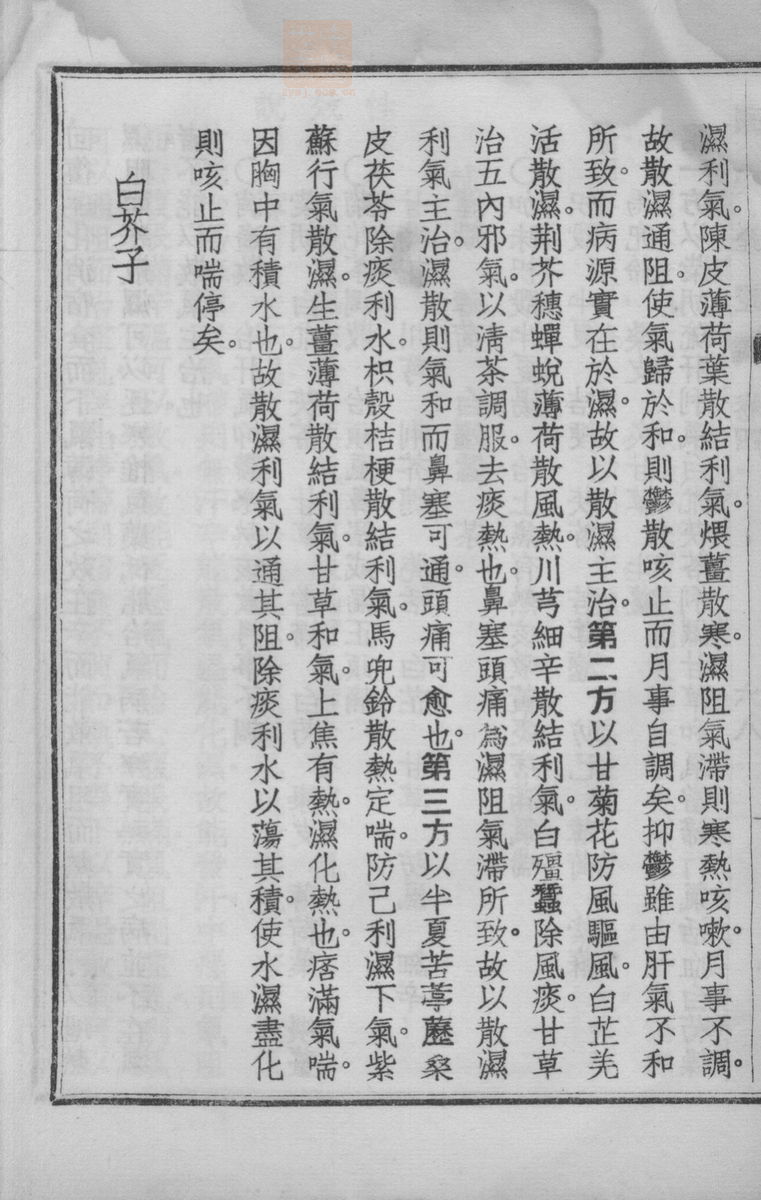 濕利氣。陳皮薄荷葉散結利氣。煨薑散寒。濕阻氣滯則寒熱咳嗽。月事不調。
故散濕通阻。使氣歸於和。則鬱散咳止而月事自調矣。抑鬱雖由肝氣不和
所致。而病源實在於濕。故以散濕主治。第二方以甘菊花防風驅風。白芷羌
活散濕。荆芥穗蟬蛻薄荷散風熱。川芎細辛散結利氣。白殭蠶除風痰。甘草
治五內邪氣。以淸茶調服。去痰熱也。鼻塞頭痛爲濕阻氣滯所致。故以散濕
利氣主治。濕散則氣和而鼻塞可通。頭痛可愈也。第三方以半夏苦葶藶桑
皮茯苓除痰利水。枳殼桔梗散結利氣。馬兜鈴散熱定喘。防己利濕下氣。紫
蘇行氣散濕。生薑薄荷散結利氣。甘草和氣。上焦有熱。濕化熱也。痞滿氣喘。
因胸中有積水也。故散濕利氣以通其阻。除痰利水以蕩其積。使水濕盡化
則咳止而喘停矣。
白芥子